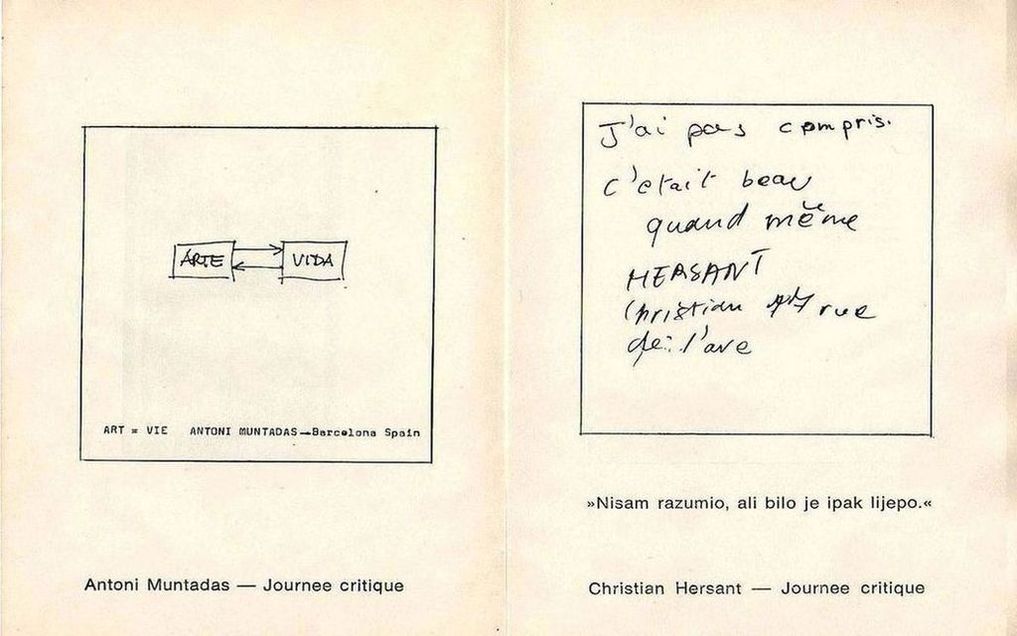 ARTE
VIDA
ART = VIE ANTONI MUNTADAS—Barcelona Spain
Antoni Muntadas — Journee critique
J'ai pas compris.
c'etait beau
quand même
HERSANT
Christian rue
de l'ave
»Nisam razumio, ali bilo je ipak lijepo.«
Christian Hersant — Journee critique